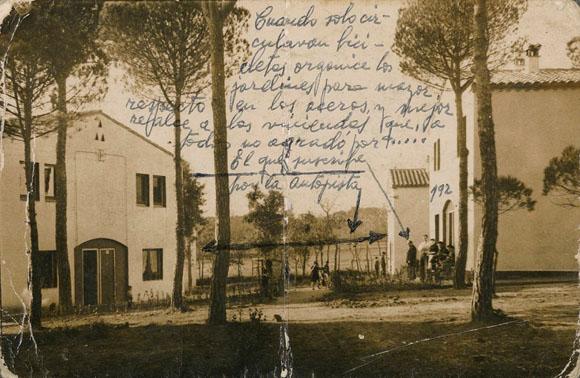 Cuando solo cir-
culavan bici-
cletas organice los
jardines para mayor
respecto en las aceras, y mejor
regalce a las viviendas que, a
todos no agrado por.....
El que inscribe
por la Autopista
192